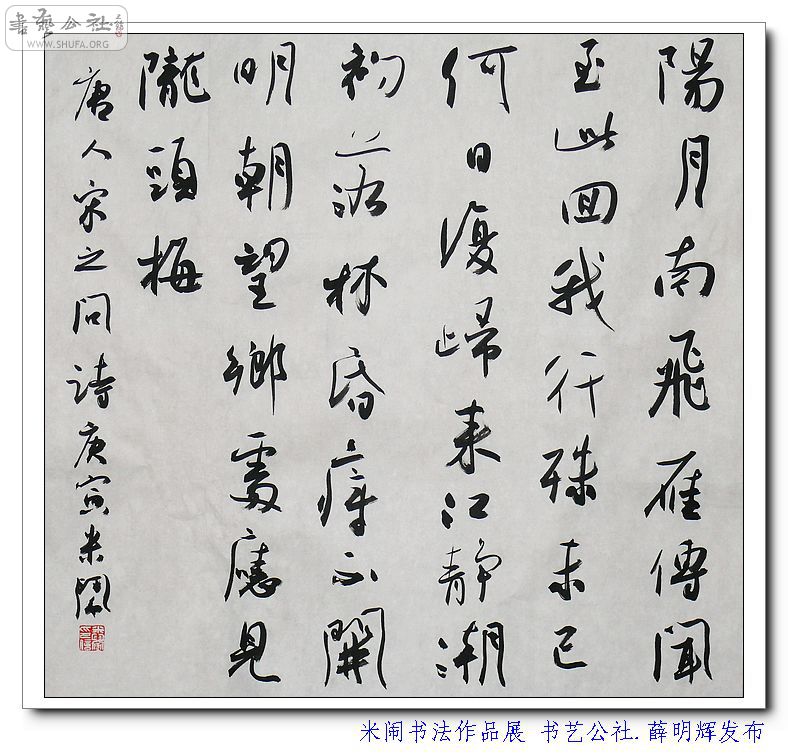 書藝公社
www.SHUFA.ORG
陽月南飛雁傳聞
至此回我行殊未已
何日復歸来江静潮
初落林昏瘴不開
明朝望鄉處應見
隴頭梅
唐人宋之问詩庚寅米鬧
米闹书法作品展 书艺公社.薛明辉发布